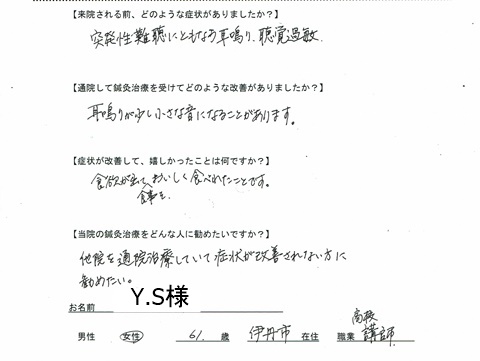 【来院される前、どのような症状がありましたか？】
突発性難聴にともなう耳鳴り、聴覚過敏
【通院して鍼灸治療を受けてどのような改善がありましたか？】
耳鳴りが少し小さな音になることがあります。
【症状が改善して、嬉しかったことは何ですか？】
食欲が出て、おいしく食べれたことです。
食事を
【当院の鍼灸治療をどんな人に勧めたいですか？】
他院を通院治療していて症状が改善されない方に
勧めたい。
お名前 Y.S様
男性 女性 61 歳 伊丹市 在住 職業 高校講師